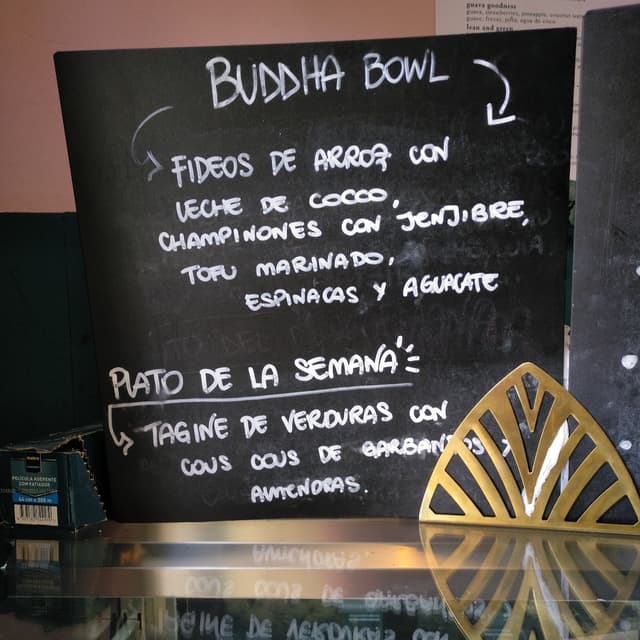 guava goodness
guava, strawberries, pineapple, coconut water
guava, fresas, piña, agua de coco
lean and green
BUDDHA BOWL
FIDEOS DE ARROZ CON
LECHE DE COCCO,
CHAMPINONES CON JENJIBRE,
TOFU MARINADO,
ESPINACAS Y AGUACATE
PLATO DE LA SEMANA
TAGINE DE VERDURAS CON
COUS COUS DE GARBANZOS Y
ALMENDRAS.
PELÍCULA ADERENTE
CON ESTUCHE